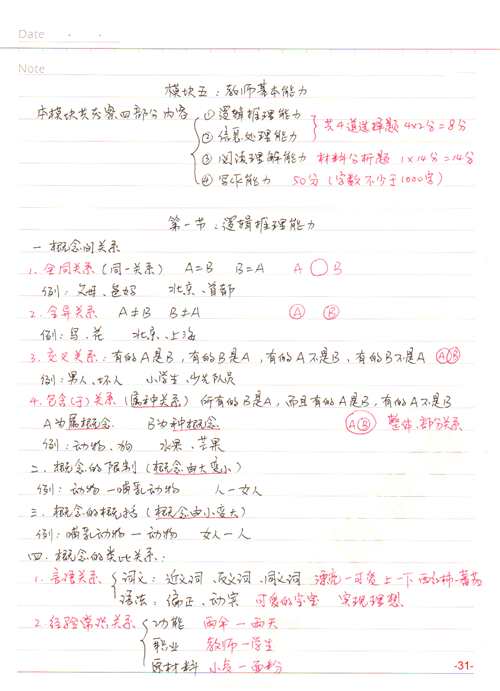 Date
Note
模块五：教师基本能力
本模块共考察四部分内容
① 逻辑推理能力
② 信息处理能力
共4道选择题 4×2分=8分
③ 阅读理解能力 材料分析题 1×14分=14分
④ 写作能力 50分（字数不少于1000字）
第一节：逻辑推理能力
一.概念间关系
1.全同关系（同一关系） A=B B=A A B
例：父母、爸妈 北京、首都
2.全异关系 A≠B B≠A A B
例：鸟、花 北京、上海
3.交叉关系：有的A是B，有的B是A，有的A不是B，有的B不是A AB
例：男人、坏人 小学生、少先队员
4.包含(于)关系（属种关系）所有的B是A，而且有的A是B，有的A不是B
A为属概念 B为种概念 AB 整体、部分关系
例：动物、狗 水果、芒果
二.概念的限制（概念由大变小）
例：动物—哺乳动物 人—女人
三.概念的概括（概念由小变大）
例：哺乳动物—动物 女人—人
四.概念的类比关系：
1.言语关系
词义：近义词、反义词、同义词 漂亮—可爱 上—下 西红柿-番茄
语法：偏正、动宾 可爱的宝宝 实现理想
2.经验常识关系
功能 雨伞—雨天
职业 教师—学生
原材料 小麦—面粉
-31-